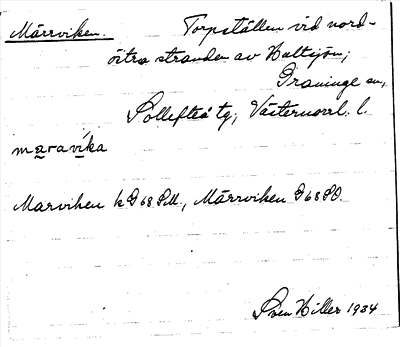 Märrviken. Torpställen vid nord-
östra stranden av Holtsjön;
Graninge sn,
Sollefteå tg, Västernorrl. l.
maravika
Marviken k G68 SM., Märrviken G68 SO.
Sven Hiller 1934